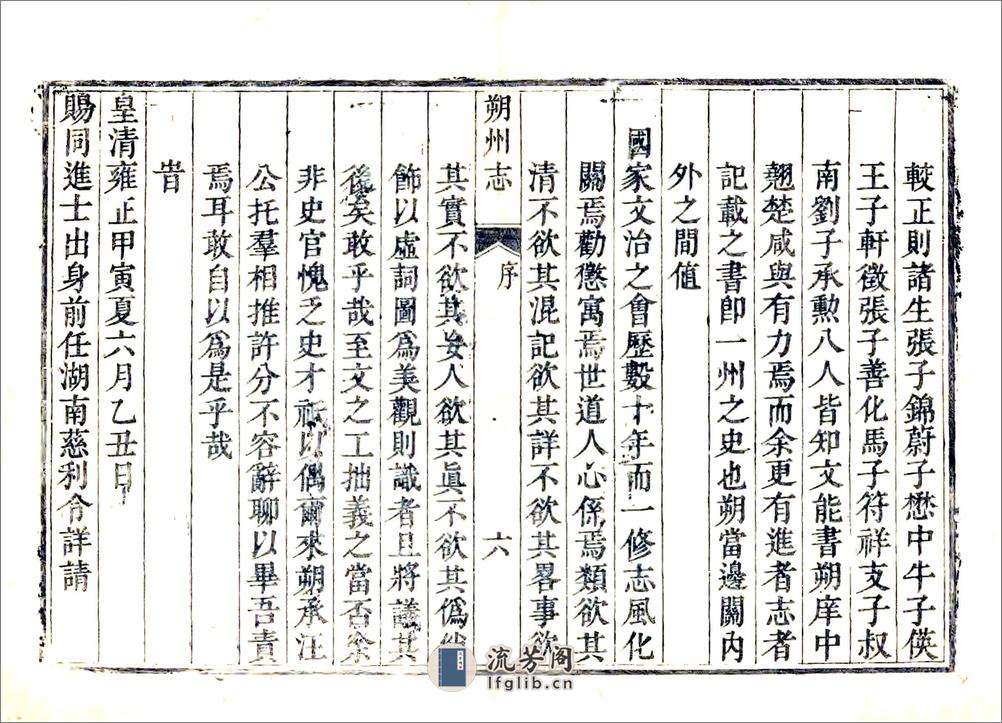 較正則諸生張子錦蔚子懋中牛子僙
王子軒徵張子善化馬子符祥支子叔
南劉子承勲八人皆知文能書朔庠中
翹楚咸與有力焉而余更有進者志者
記載之書卽一州之史也朔當邊關內
外之間值
國家文治之會歷數十年而一修志風化
關焉勸懲寓焉世道人心係焉類欲其
清不欲其混記欲其詳不欲其畧事欲
朔州志
序
六
其實不欲其妄人欲其眞不欲其僞
飾以虛詞圖爲美觀則識者且將議其
後矣敢乎哉至文之工拙義之當否余
非史官愧乏史才祇以偶爾來朔承汪
公托羣相推許分不容辭聊以畢吾責
焉耳敢自以爲是乎哉
旹
皇清雍正甲寅夏六月乙丑日
賜同進士出身前任湖南慈利令詳請
流芳阁
lfglib.cn